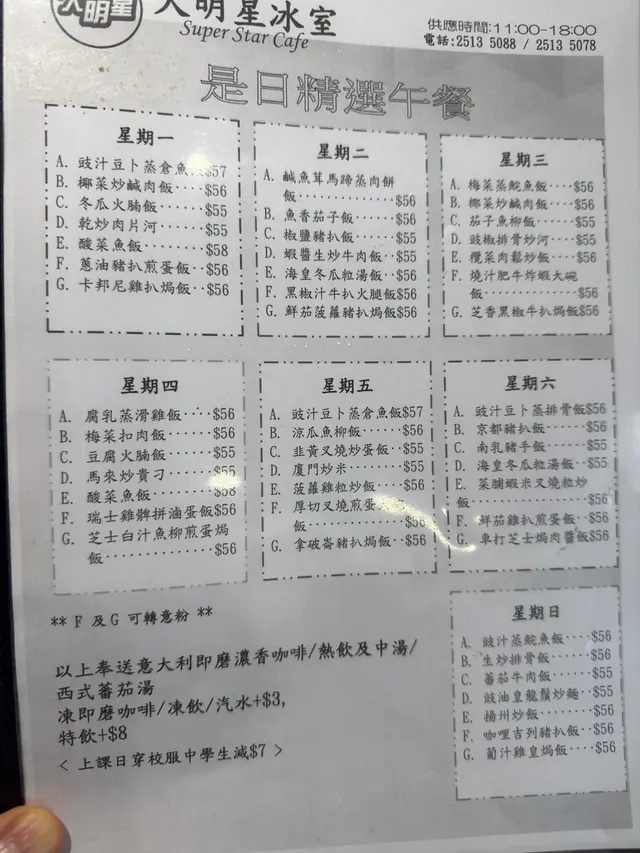 大明星
大明星冰室
Super Star Cafe
供應時間:11:00-18:00
電話:2513 5088 / 2513 5078
是日精選午餐
星期一
A. 豉汁豆卜蒸倉魚飯$57
B. 椰菜炒鹹肉飯···$56
C. 冬瓜火腩飯····$55
D. 乾炒肉片河····$55
E. 酸菜魚飯·····$58
F. 蔥油豬扒煎蛋飯··$56
G. 卡邦尼雞扒焗飯··$56
星期二
A. 鹹魚茸馬蹄蒸肉餅
飯············$56
B. 魚香茄子飯····$56
C. 椒鹽豬扒飯····$55
D. 蝦醬生炒牛肉飯··$55
E. 海皇冬瓜粒湯飯··$56
F. 黑椒汁牛扒火腿飯$56
G. 鮮茄菠蘿豬扒焗飯$56
星期三
A. 梅菜蒸鯇魚飯····$56
B. 椰菜炒鹹肉飯····$56
C. 茄子魚柳飯·····$55
D. 豉椒排骨炒河····$55
E. 欖菜肉鬆炒飯····$56
F. 燒汁肥牛炸蝦大碗
飯·············$56
G. 芝香黑椒牛扒焗飯$56
星期四
A. 腐乳蒸滑雞飯····$56
B. 梅菜扣肉飯·····$56
C. 豆腐火腩飯·····$55
D. 馬來炒貴刁·····$55
E. 酸菜魚飯······$58
F. 瑞士雞髀拼滷蛋飯$56
G. 芝士白汁魚柳煎蛋焗
飯·············$56
星期五
A. 豉汁豆卜蒸倉魚飯$57
B. 涼瓜魚柳飯·····$56
C. 韭黃叉燒炒蛋飯··$55
D. 廈門炒米······$55
E. 菠蘿雞粒炒飯····$56
F. 厚切叉燒煎蛋
飯·············$56
G. 拿破崙豬扒焗飯··$56
星期六
A. 豉汁豆卜蒸排骨飯$56
B. 京都豬扒飯·····$56
C. 南乳豬手飯·····$55
D. 海皇冬瓜粒湯飯··$55
E. 菜脯蝦米叉燒粒炒
飯·············$56
F. 鮮茄雞扒煎蛋飯··$56
G. 車打芝士焗肉醬飯$56
星期日
A. 豉汁蒸鯇魚飯····$56
B. 生炒排骨飯·····$56
C. 蕃茄牛肉飯·····$55
D. 豉油皇龍鬚炒麵··$55
E. 揚州炒飯······$56
F. 咖哩吉列豬扒飯··$56
G. 葡汁雞皇焗飯····$56
** F 及 G 可轉意粉 **
以上奉送意大利即磨濃香咖啡/熱飲及中湯/
西式蕃茄湯
凍即磨咖啡/凍飲/汽水+$3,
特飲+$8
< 上課日穿校服中學生減$7 >